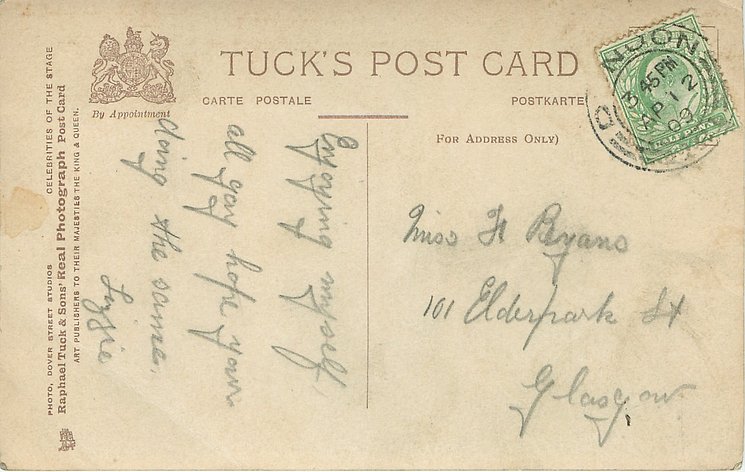 TUCK'S POST CARD
By Appointment
CARTE POSTALE
POSTKARTE
FOR ADDRESS ONLY)
PHOTO, DOVER STREET STUDIOS CELEBRITIES OF THE STAGE
Raphael Tuck & Sons' Real Photograph Post Card
ART PUBLISHERS TO THEIR MAJESTIES THE KING & QUEEN.
Enjoying myself
all gay hope your
doing the same.
Lizzie
Miss H Bryans
101 Elderpark St
Glasgow
NDON
45 PM
AP 12
09